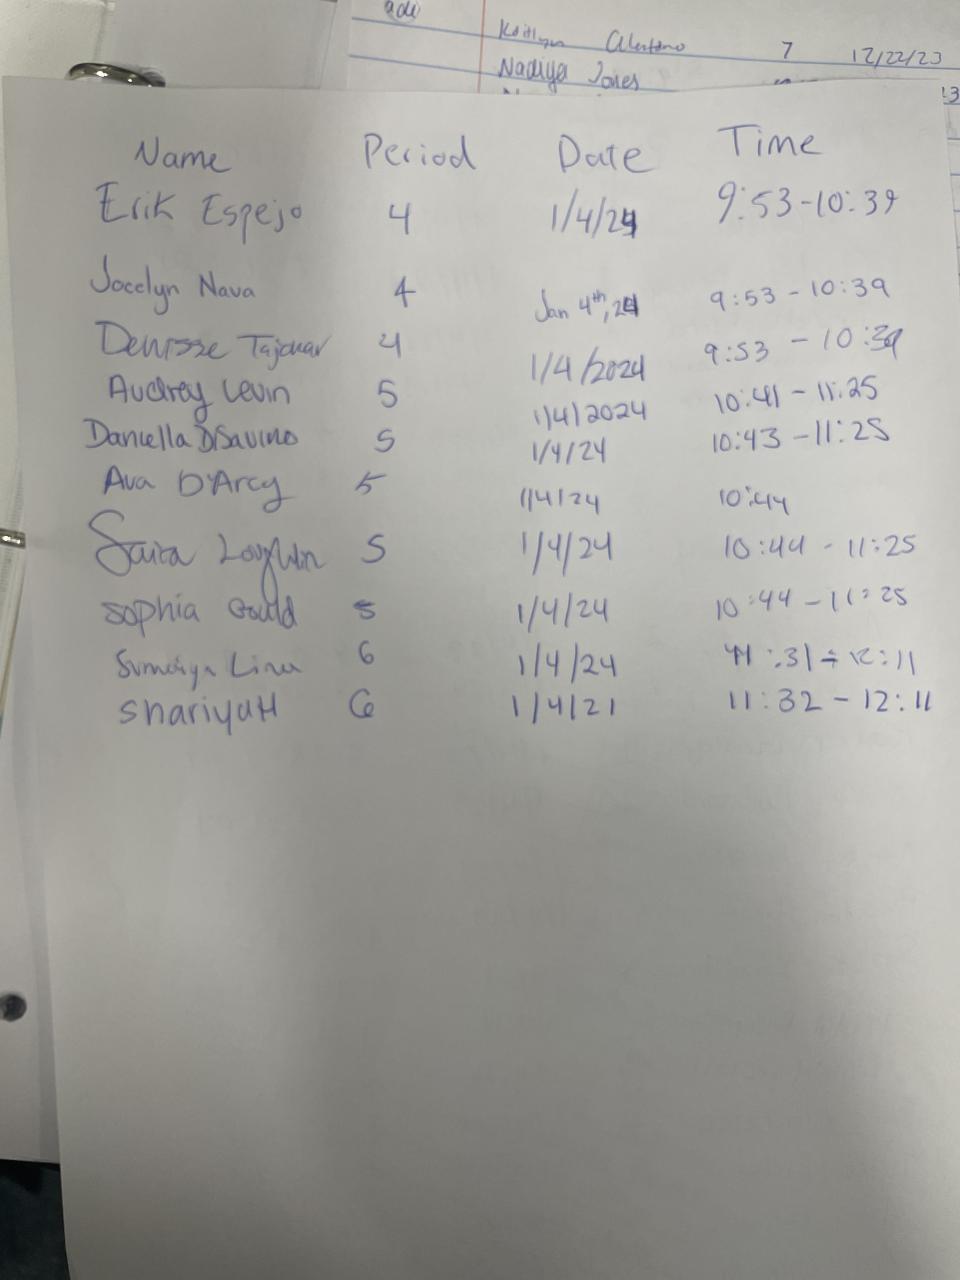 7 12/22/23
Nadiya Jones
Name Period Date Time
Erik Espejo 4 1/4/24 9:53-10:39
Jocelyn Nava 4 Jan 4th, 24 9:53 - 10:39
Denisse 4 1/4/2024 9:53 - 10:39
Audrey Levin 5 1/4/2024 10:41 - 11:25
Daniella DiSavino 5 1/4/24 10:43 - 11:25
Ava D'Arcy 5 1/4/24 10:44
Saira Loughlin 5 1/4/24 10:44 - 11:25
Sophia Gould 5 1/4/24 10:44 - 11:25
6 1/4/24 11:31 - 12:11
shariyaH 6 1/4/21 11:32 - 12:11